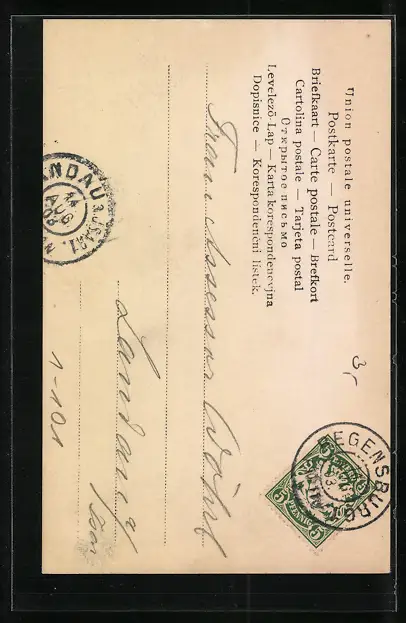 Union postale universelle.
Postkarte — Postcard
Briefkaart — Carte postale — Brefkort
Cartolina postale — Tarjeta postal
Открытое письмо
Levelező-Lap — Karta korespondencyjna
Dopisnice — Korespondenční lístek.
3,-
EGENSBURG
5 5
PFENNIG
5 5
Frau Assessor
Landau
Isar
LANDAU A. ISAR
AUG
1-101